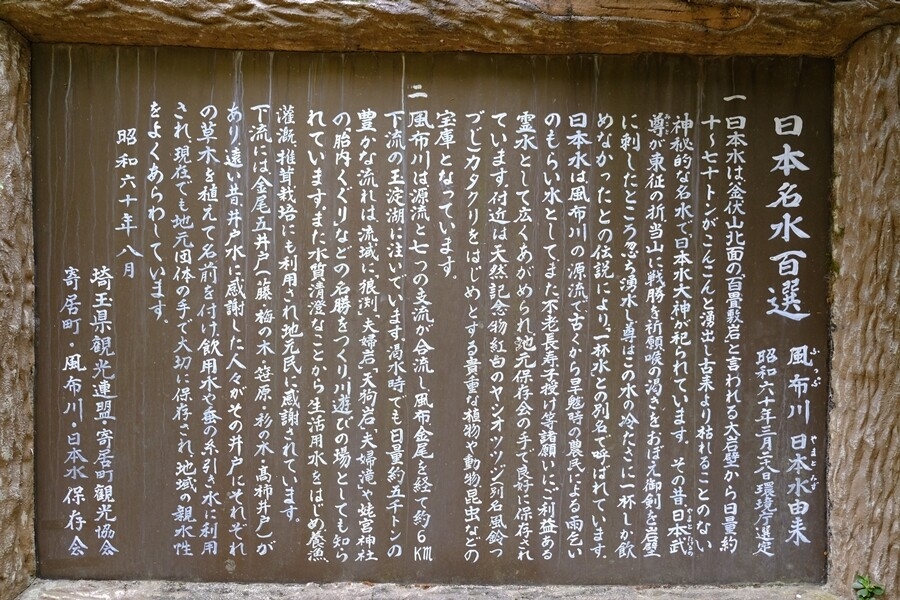 日本名水百選
風布川 日本水由来
昭和六十年三月二八日環境庁選定
一 日本水は、釜伏山北面の「百畳敷岩」と言われる大岩壁から日量約
十〜七十トンがこんこんと湧出し古来より枯れることのない
神秘的な名水で日本水大神が祀られています。その昔日本武
尊が東征の折当山に戦勝を祈願喉の渇きをおぼえ御剣を岩壁
に刺したところ忽ち湧水し尊はこの水の冷たさに一杯しか飲
めなかったとの伝説により、一杯水との別名で呼ばれています。
日本水は風布川の源流で古くから旱魃時の農民による雨乞い
のもらい水としてまた不老長寿子授け等諸願いにご利益ある
霊水として広くあがめられ地元保存会の手で良好に保存され
ています。付近は天然記念物紅白のヤシオツツジ列石風鈴つ
つじカタクリをはじめとする貴重な植物や動物昆虫などの
宝庫となっています。
二 風布川は源流と七つの支流が合流し風布金尾を経て約6km
下流の玉淀湖に注いでいます。渇水時でも日量約五千トンの
豊かな流れは流域に「狼渕」「夫婦岩」「天狗岩」「夫婦滝」や姥宮神社
の胎内くぐりなどの名勝をつくり川遊びの場としても知ら
れていますまた水質清澄なことから生活用水をはじめ養魚、
灌漑、椎茸栽培にも利用され地元民に感謝されています。
下流には「金尾五井戸」(藤・梅の木・笹原・杉の木・高柿井戸)が
あり遠い昔井戸水に感謝した人々がその井戸にそれぞれ
の草木を植えて名前を付け飲用水や蚕の糸引き水に利用
され、現在でも地元団体の手で大切に保存され、地域の親水性
をよくあらわしています。
昭和六十年八月
埼玉県観光連盟・寄居町観光協会
寄居町・風布川・日本水保存会